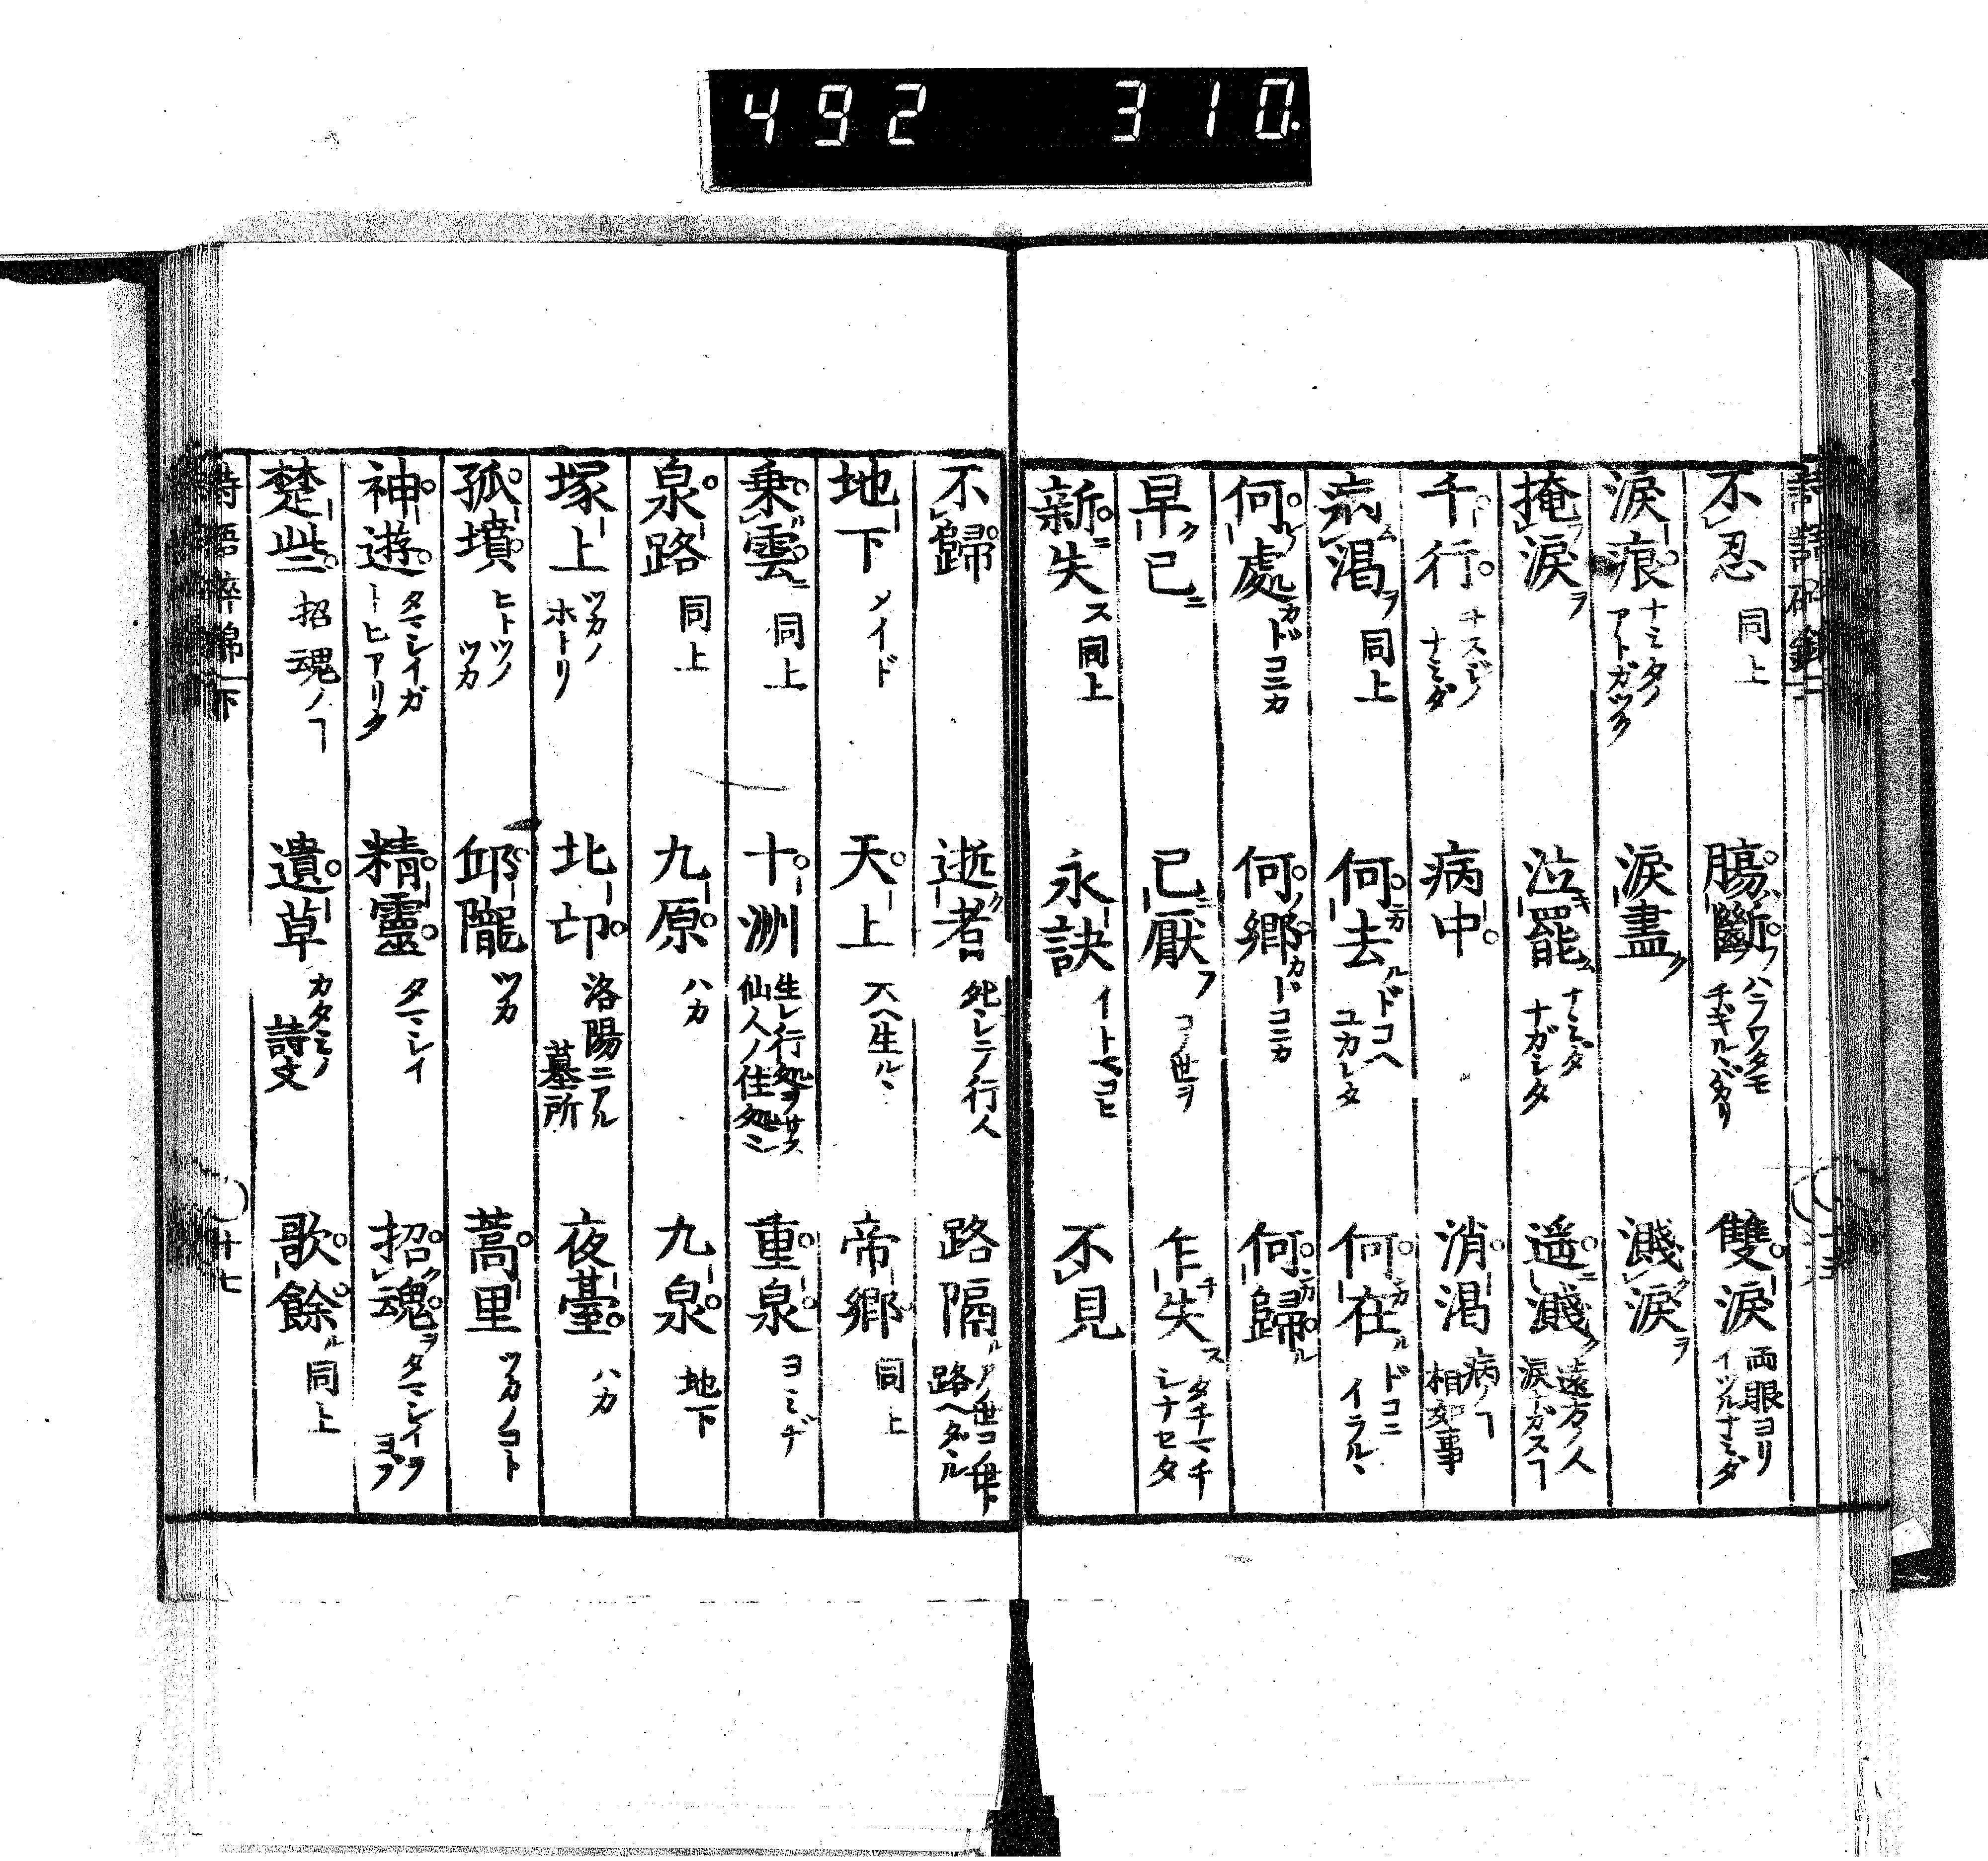 492 310.
不忍 同上
腸斷 ハラワタモ チギルバカリ
雙淚 両眼ヨリ イヅルナミダ
淚痕 ナミダノ アトガツク
淚盡ク
濺淚ヲ
掩淚ヲ
泣罷 ナミダ ナガシタ
遥ニ濺ク 遠方ノ人 淚ナガスヿ
千行 チスジノ ナミダ
病中
消渇 病ノヿ 相如事
病渇ヲ 同上
何去ル ドコヘ ユカレタ
何在ル ドコニ イラルヽ
何處カ ドコニカ
何ノ郷 ドコニカ
何歸ル
早ク已ニ
已ニ厭フ コノ世ヲ
乍チ失ス タチマチ シナセタ
新ニ失ス 同上
永訣 イトマゴヒ
不見
不歸
逝者 死シテ行人
路隔ル アノ世コノ世ト 路ヘダヽル
地下 メイド
天上 天ヘ生ルヽ
帝郷 同上
乗雲ニ 同上
十洲 生レ行処ヲサス 仙人ノ住処ニ
重泉 ヨミヂ
泉路 同上
九原 ハカ
九泉 地下
塚上 ツカノ ホトリ
北邙 洛陽ニアル 墓所
夜臺 ハカ
孤墳 ヒトツノ ツカ
邱隴 ツカ
蒿里 ツカノコト
神遊 タマシイガ トビアリク
精靈 タマシイ
招魂ヲ タマシイヲ ヨブ
楚些 招魂ノヿ
遺草 カタミノ 詩文
歌餘ル 同上
詩語粹錦 下
十七